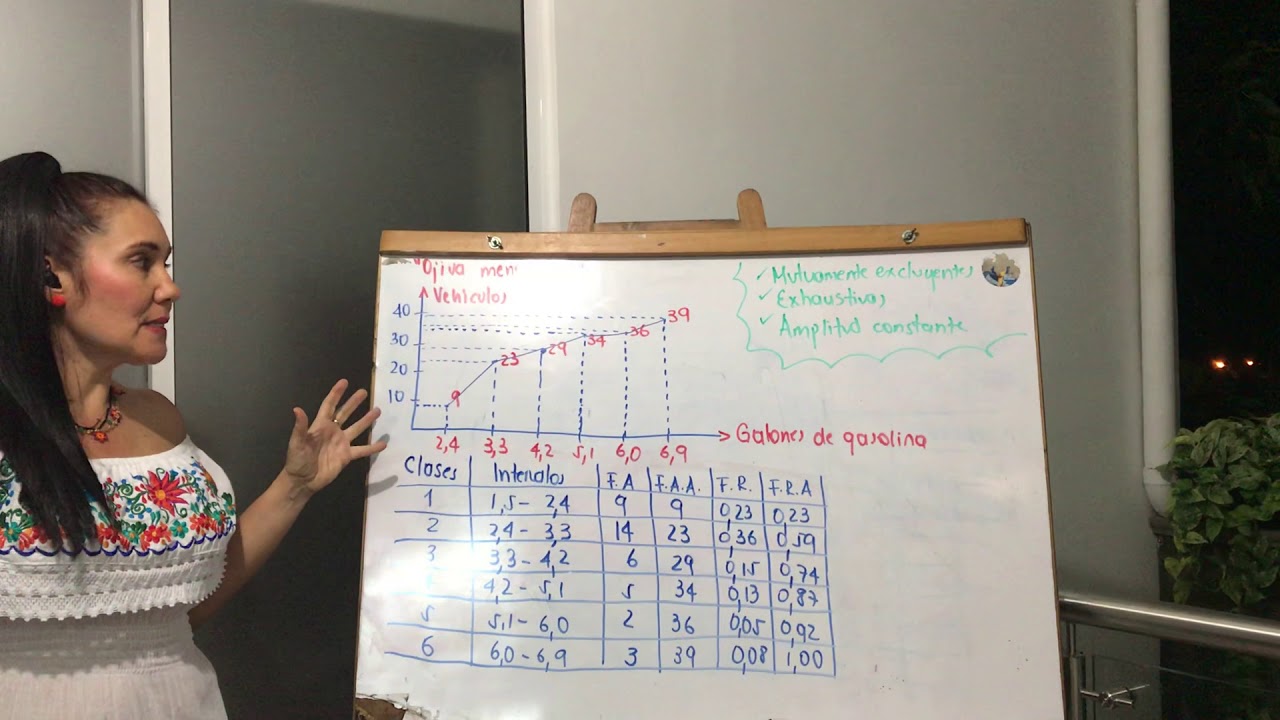 Ojiva men
Vehículos
40
30
20
10
9
23
29
34
36
39
2,4 3,3 4,2 5,1 6,0 6,9
Galones de gasolina
✓ Mutuamente excluyentes
✓ Exhaustivas
✓ Amplitud constante
Clases Intervalos F.A F.A.A. F.R. F.R.A
1 1,5 - 2,4 9 9 0,23 0,23
2 2,4 - 3,3 14 23 0,36 0,59
3 3,3 - 4,2 6 29 0,15 0,74
4,2 - 5,1 5 34 0,13 0,87
5 5,1 - 6,0 2 36 0,05 0,92
6 6,0 - 6,9 3 39 0,08 1,00